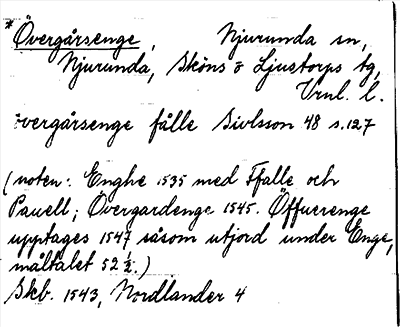 *Övergårsenge, Njurunda sn,
Njurunda, Sköns o Ljustorps tg,
Vrnl. l.
övergårsenge fälle Sivlsson 48 s.127
(noten: Enghe 1535 med Ffalle och
Pauell; Övergardenge 1545. Öffuerenge
upptages 1547 såsom utjord under Enge,
måltalet 52 ½.)
Skb. 1543, Nordlander 4